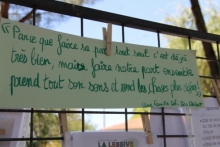 "Parce que faire sa part tout seul c'est déjà
très bien, mais faire notre part ensemble
prend tout son sens et rend les choses plus
LA LESSIVE